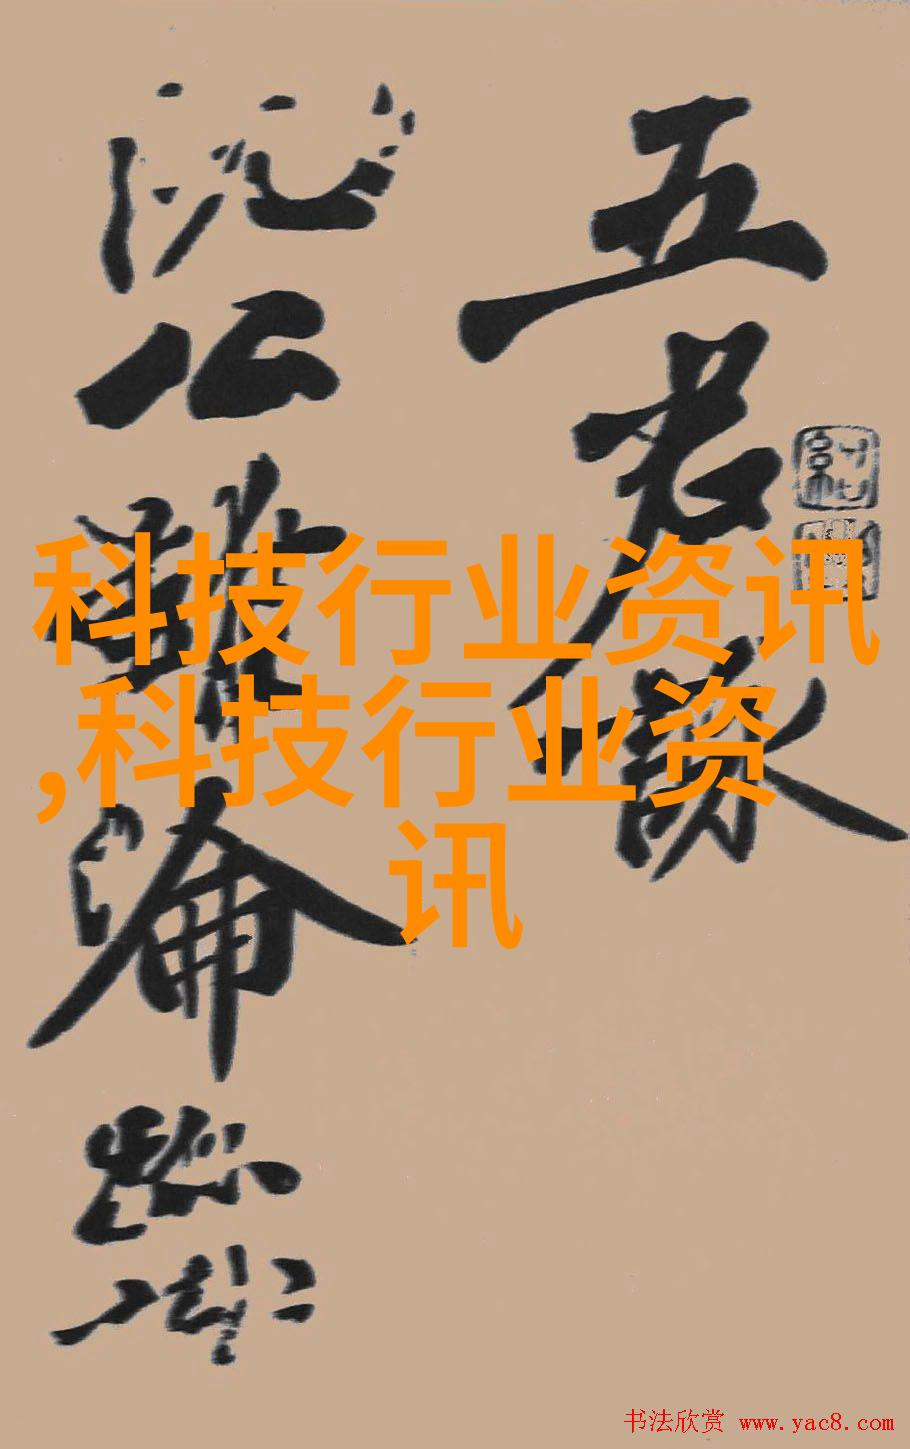 五君詠
阮公雖淪跡
科技行业资讯
,科技行业资
讯
书法欣赏 www.yac8.com